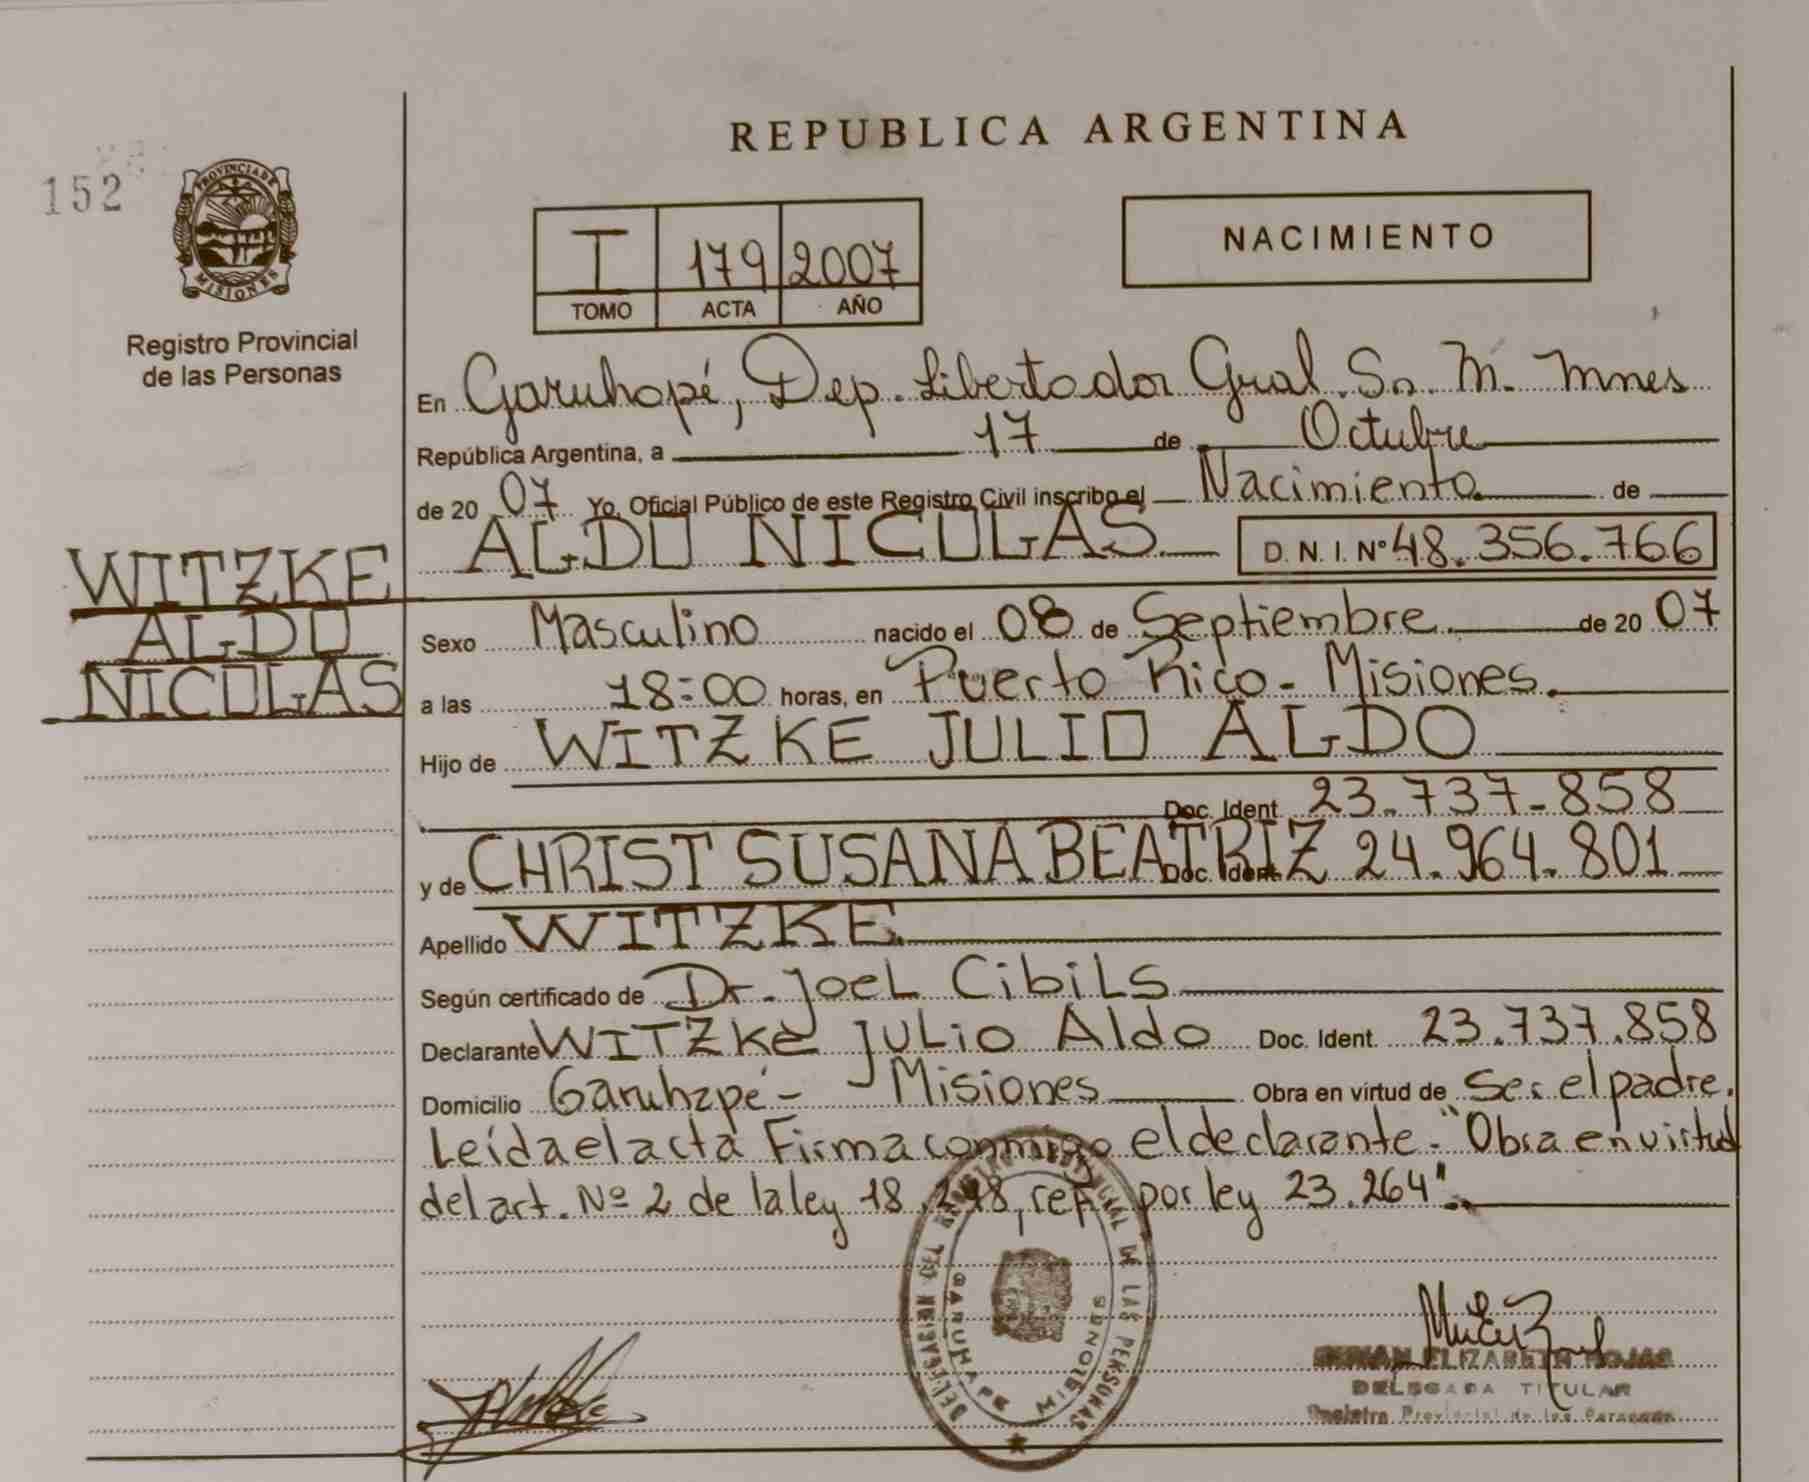 REPUBLICA ARGENTINA
152
PROVINCIA DE MISIONES
Registro Provincial
de las Personas
I 179 2007
TOMO ACTA AÑO
NACIMIENTO
En Garuhapé, Dep. Libertador Gral. Sn. M. Mnes
República Argentina, a 17 de Octubre
de 20 07 Yo, Oficial Público de este Registro Civil inscribo el Nacimiento de
ALDO NICOLAS D.N.I. Nº 48.356.766
WITZKE
ALDO
NICOLAS
Sexo Masculino nacido el 08 de Septiembre de 20 07
a las 18:00 horas, en Puerto Rico - Misiones.
Hijo de WITZKE JULIO ALDO
Doc. Ident. 23.737.858
y de CHRIST SUSANA BEATRIZ Doc. Ident. 24.964.801
Apellido WITZKE
Según certificado de Dr. Joel Cibils
Declarante WITZKE Julio Aldo Doc. Ident. 23.737.858
Domicilio Garuhapé - Misiones Obra en virtud de Ser el padre.
Leída el acta Firma conmigo el declarante.- "Obra en virtud
del art. Nº 2 de la ley 18.248, ref. por ley 23.264".
DELEGACION DEL REGISTRO PROVINCIAL DE LAS PERSONAS
GARUHAPE MISIONES
MIRIAN ELIZABETH ROJAS
DELEGADA TITULAR
Registro Provincial de las Personas